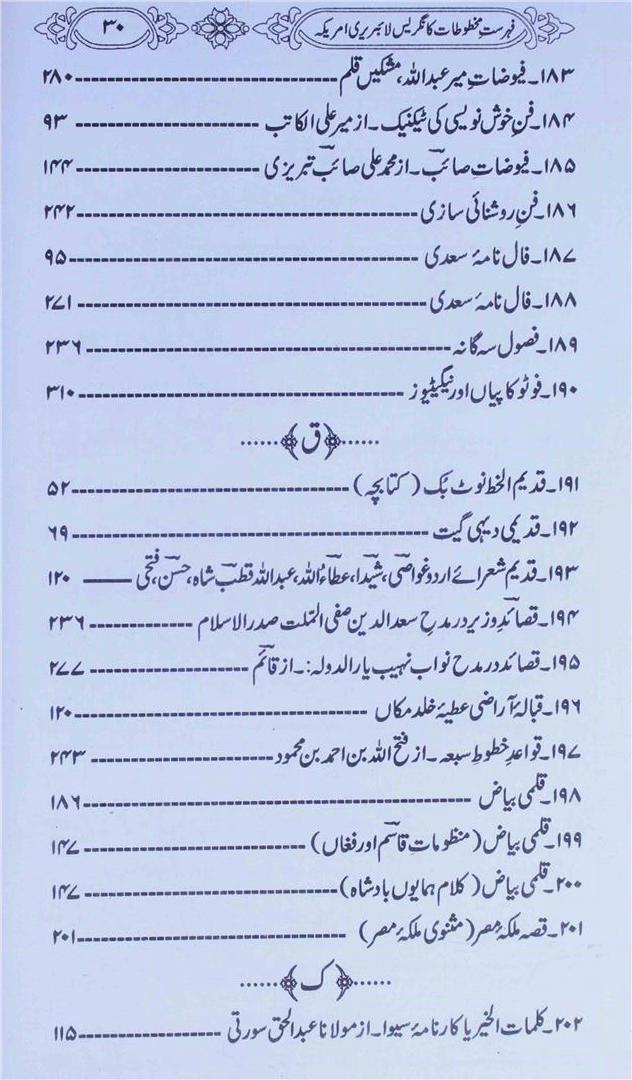 فہرستِ مخطوطات کانگریس لائبریری امریکہ ۳۰
۱۸۳۔فیوضاتِ میر عبداللہ، مشکیں قلم ------------ ۲۸۰
۱۸۴۔فنِ خوش نویسی کی ٹیکنیک۔ از میر علی الکاتب ------------ ۹۳
۱۸۵۔فیوضاتِ صائبؔ۔ از محمد علی صائبؔ تبریزی ------------ ۱۴۴
۱۸۶۔فنِ روشنائی سازی ------------ ۲۴۲
۱۸۷۔فال نامۂ سعدی ------------ ۹۵
۱۸۸۔فال نامۂ سعدی ------------ ۲۷۱
۱۸۹۔فصول سہ گانہ ------------ ۲۳۶
۱۹۰۔فوٹو کاپیاں اور نیگیٹیوز ------------ ۳۱۰
......﴿ق﴾......
۱۹۱۔قدیم الخط نوٹ بک (کتابچہ) ------------ ۵۲
۱۹۲۔قدیمی دیہی گیت ------------ ۶۹
۱۹۳۔قدیم شعرائے اردو غواصیؔ، شیداؔ، عطاءؔاللہ، عبداللہ قطبؔ شاہ، حسنؔ، فتحیؔ —— ۱۲۰
۱۹۴۔قصائدِ وزیر در مدحِ سعد الدین صفی الملت صدر الاسلام ------------ ۲۳۶
۱۹۵۔قصائد در مدح نواب نہیب یار الدولہ:۔ از قائمؔ ------------ ۲۷۷
۱۹۶۔قبالۂ آراضی عطیۂ خلد مکاں ------------ ۱۲۰
۱۹۷۔قواعدِ خطوطِ سبعہ۔ از فتح اللہ بن احمد بن محمود ------------ ۲۴۳
۱۹۸۔قلمی بیاض ------------ ۱۸۶
۱۹۹۔قلمی بیاض (منظومات قاسمؔ اور فغاں) ------------ ۱۴۷
۲۰۰۔قلمی بیاض (کلام ہمایوں بادشاہ) ------------ ۱۴۷
۲۰۱۔قصہ ملکۂ مصر (مثنوی ملکۂ مصر) ------------ ۲۰۱
......﴿ک﴾......
۲۰۲۔کلمات الخیر یا کارنامۂ سیوا۔ از مولانا عبدالحق سورتی ------------ ۱۱۵